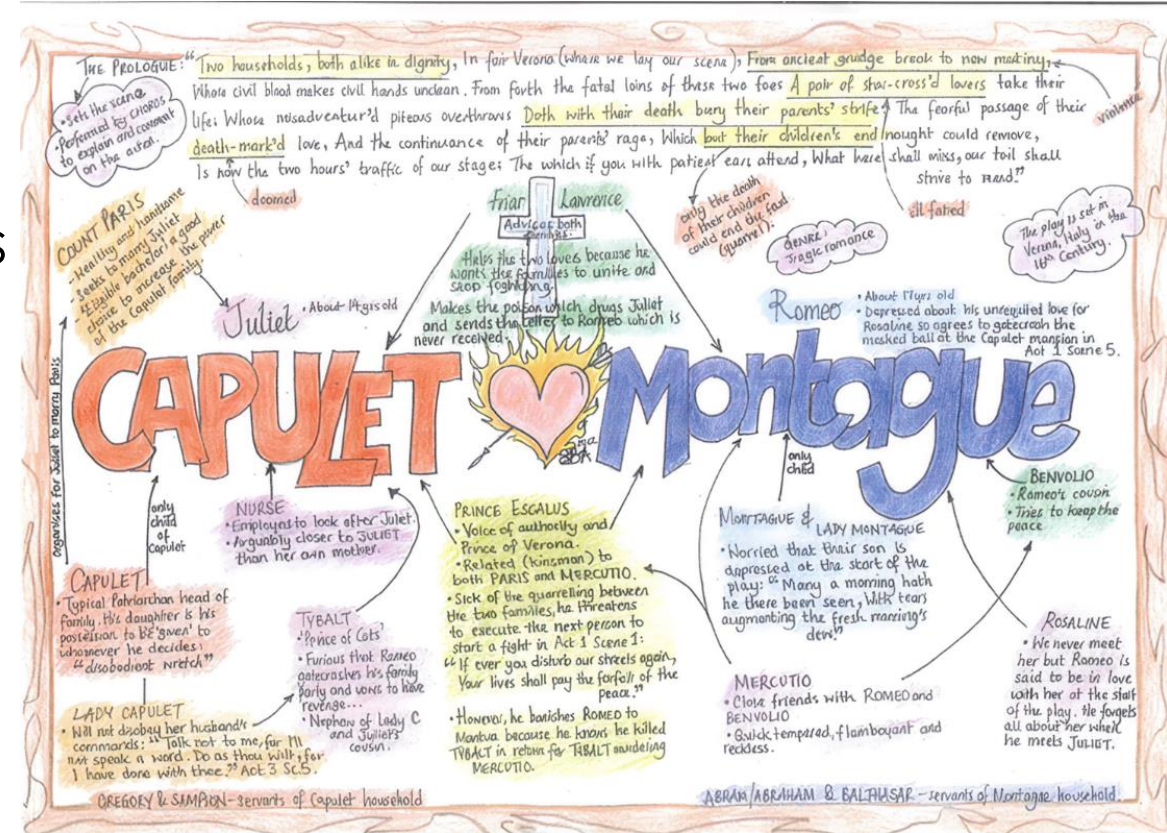 S
THE PROLOGUE: "Two households, both alike in dignity, In fair Verona (where we lay our scene), From ancient grudge break to new mutiny,
Where civil blood makes civil hands unclean. From forth the fatal loins of these two foes A pair of star-cross'd lovers take their
life; Whose misadventur'd piteous overthrows Doth with their death bury their parents' strife. The fearful passage of their
death-mark'd love, And the continuance of their parents' rage, Which but their children's end nought could remove,
Is now the two hours' traffic of our stage; The which if you with patient ears attend, What here shall miss, our toil shall
strive to mend."
• Sets the scene
• Performed by CHORUS
to explain and comment
on the action.
violence
doomed
only the death
of their children
could end the feud
(quarrel).
ill fated
GENRE:
Tragic romance
The play is set in
Verona, Italy in the
16th Century.
COUNT PARIS
- Wealthy and handsome
- Seeks to marry Juliet
- Eligible bachelor/ a good
choice to increase the power
of the Capulet family
Friar Lawrence
Advises both
families.
Helps the two lovers because he
wants the families to unite and
stop fighting.
Makes the poison which drugs Juliet
and sends the letter to Romeo which is
never received.
Juliet • About 14yrs old
Romeo
• About 17yrs old
• Depressed about his unrequited love for
Rosaline so agrees to gatecrash the
masked ball at the Capulet mansion in
Act 1 Scene 5.
CAPULET
Montague
organises for Juliet to marry Paris
only
child
of
Capulet
CAPULET
• Typical Patriarchan head of
family. His daughter is his
possession to be 'given' to
whomever he decides:
"disobedient wretch"
LADY CAPULET
• Will not disobey her husband's
commands: "Talk not to me, for I'll
not speak a word. Do as thou wilt, for
I have done with thee." Act 3 Sc5.
GREGORY & SAMPSON - servants of Capulet household
NURSE
• Employed to look after Juliet.
• Arguably closer to JULIET
than her own mother.
TYBALT
• 'Prince of Cats'
• Furious that Romeo
gatecrashes his family
party and vows to have
revenge...
• Nephew of Lady C
and Juliet's
cousin.
PRINCE ESCALUS
• Voice of authority and
Prince of Verona.
• Related (kinsman) to
both PARIS and MERCUTIO.
• Sick of the quarrelling between
the two families, he threatens
to execute the next person to
start a fight in Act 1 Scene 1:
"If ever you disturb our streets again,
Your lives shall pay the forfeit of the
peace."
• However, he banishes ROMEO to
Mantua because he knows he killed
TYBALT in return for TYBALT murdering
MERCUTIO.
only
child
MONTAGUE &
LADY MONTAGUE
• Worried that their son is
depressed at the start of the
play: "Many a morning hath
he there been seen, With tears
augmenting the fresh morning's
dew!"
MERCUTIO
• Close friends with ROMEO and
BENVOLIO
• Quick tempered, flamboyant and
reckless.
BENVOLIO
• Romeo's cousin
• Tries to keep the
peace
ROSALINE
• We never meet
her but Romeo is
said to be in love
with her at the start
of the play. He forgets
all about her when
he meets JULIET.
ABRAM/ABRAHAM & BALTHASAR - servants of Montague household.